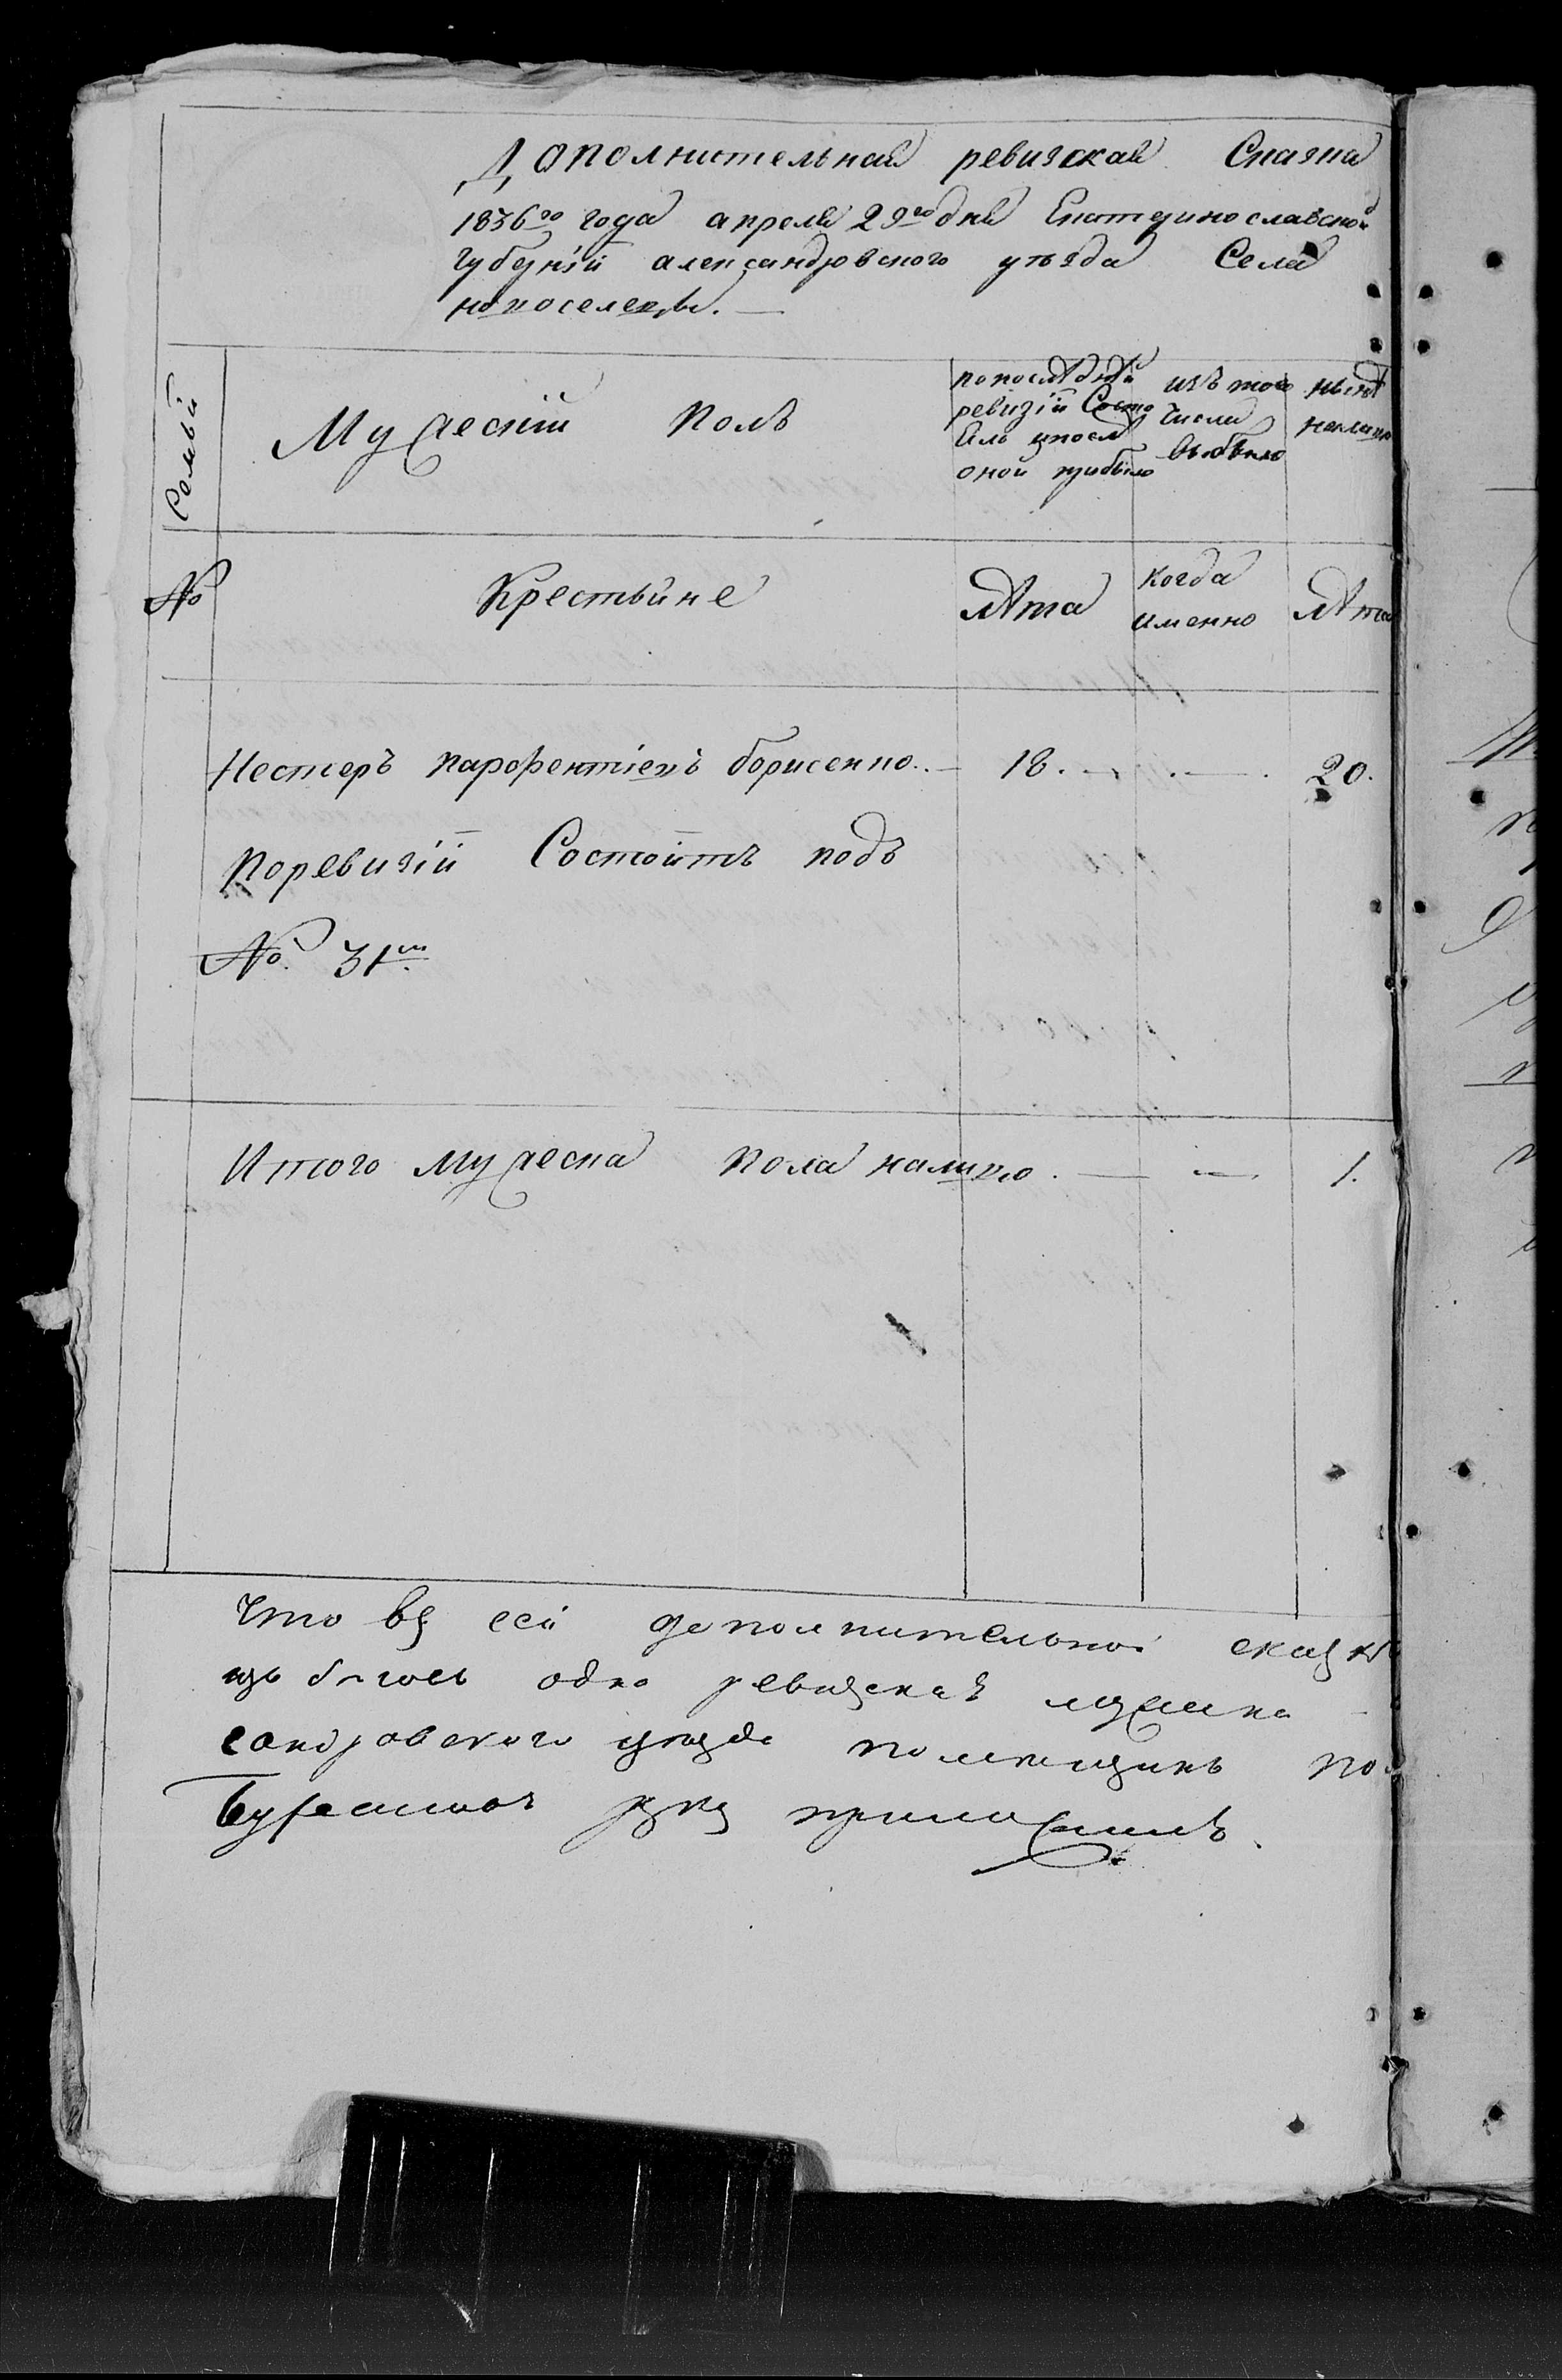 Дополнительная ревизская Сказка
1836го года апреля 29го дня Екатеринославской
губерніи александровского уезда Села
новоселецъ.
Семьи
Мужескій полъ
попоследней
ревизіи Состо
яло ипосле
оной прибыло
изъ того
числа
выбыло
ныне
налицо
№
Крестьяне
лѣта
когда
именно
лѣта
Нестеръ парфентіевъ борисенко. 18. 20.
поревизіи Состоитъ подъ
№ 31м
Итого мужеска пола налицо. 1.
Что въ сей дополнительной сказкѣ
одна ревизская мужеска
сандровского уезда помещикъ
руку приложилъ.